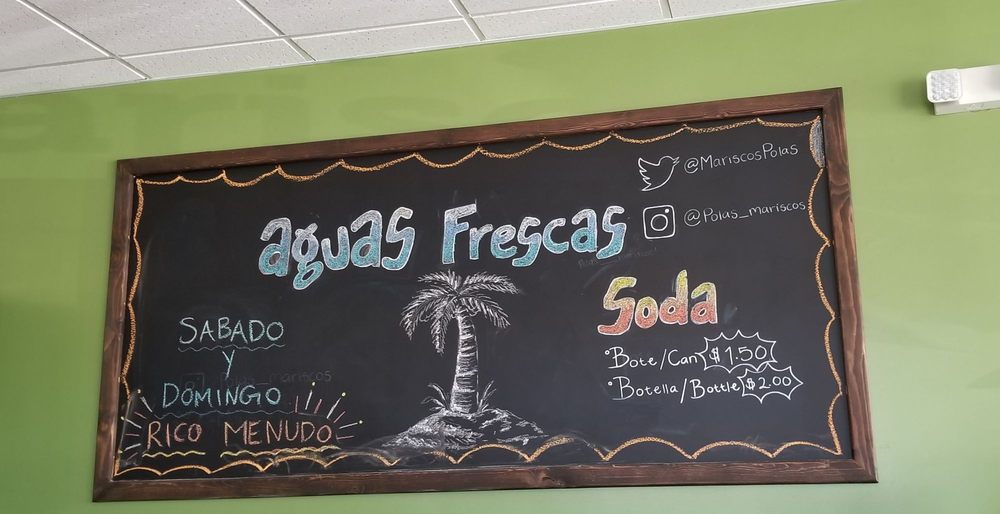 @MariscosPolas
@Polas_mariscos
aguas Frescas
Soda
Bote/Can $1.50
Botella/Bottle $2.00
SABADO
Y
DOMINGO
RICO MENUDO